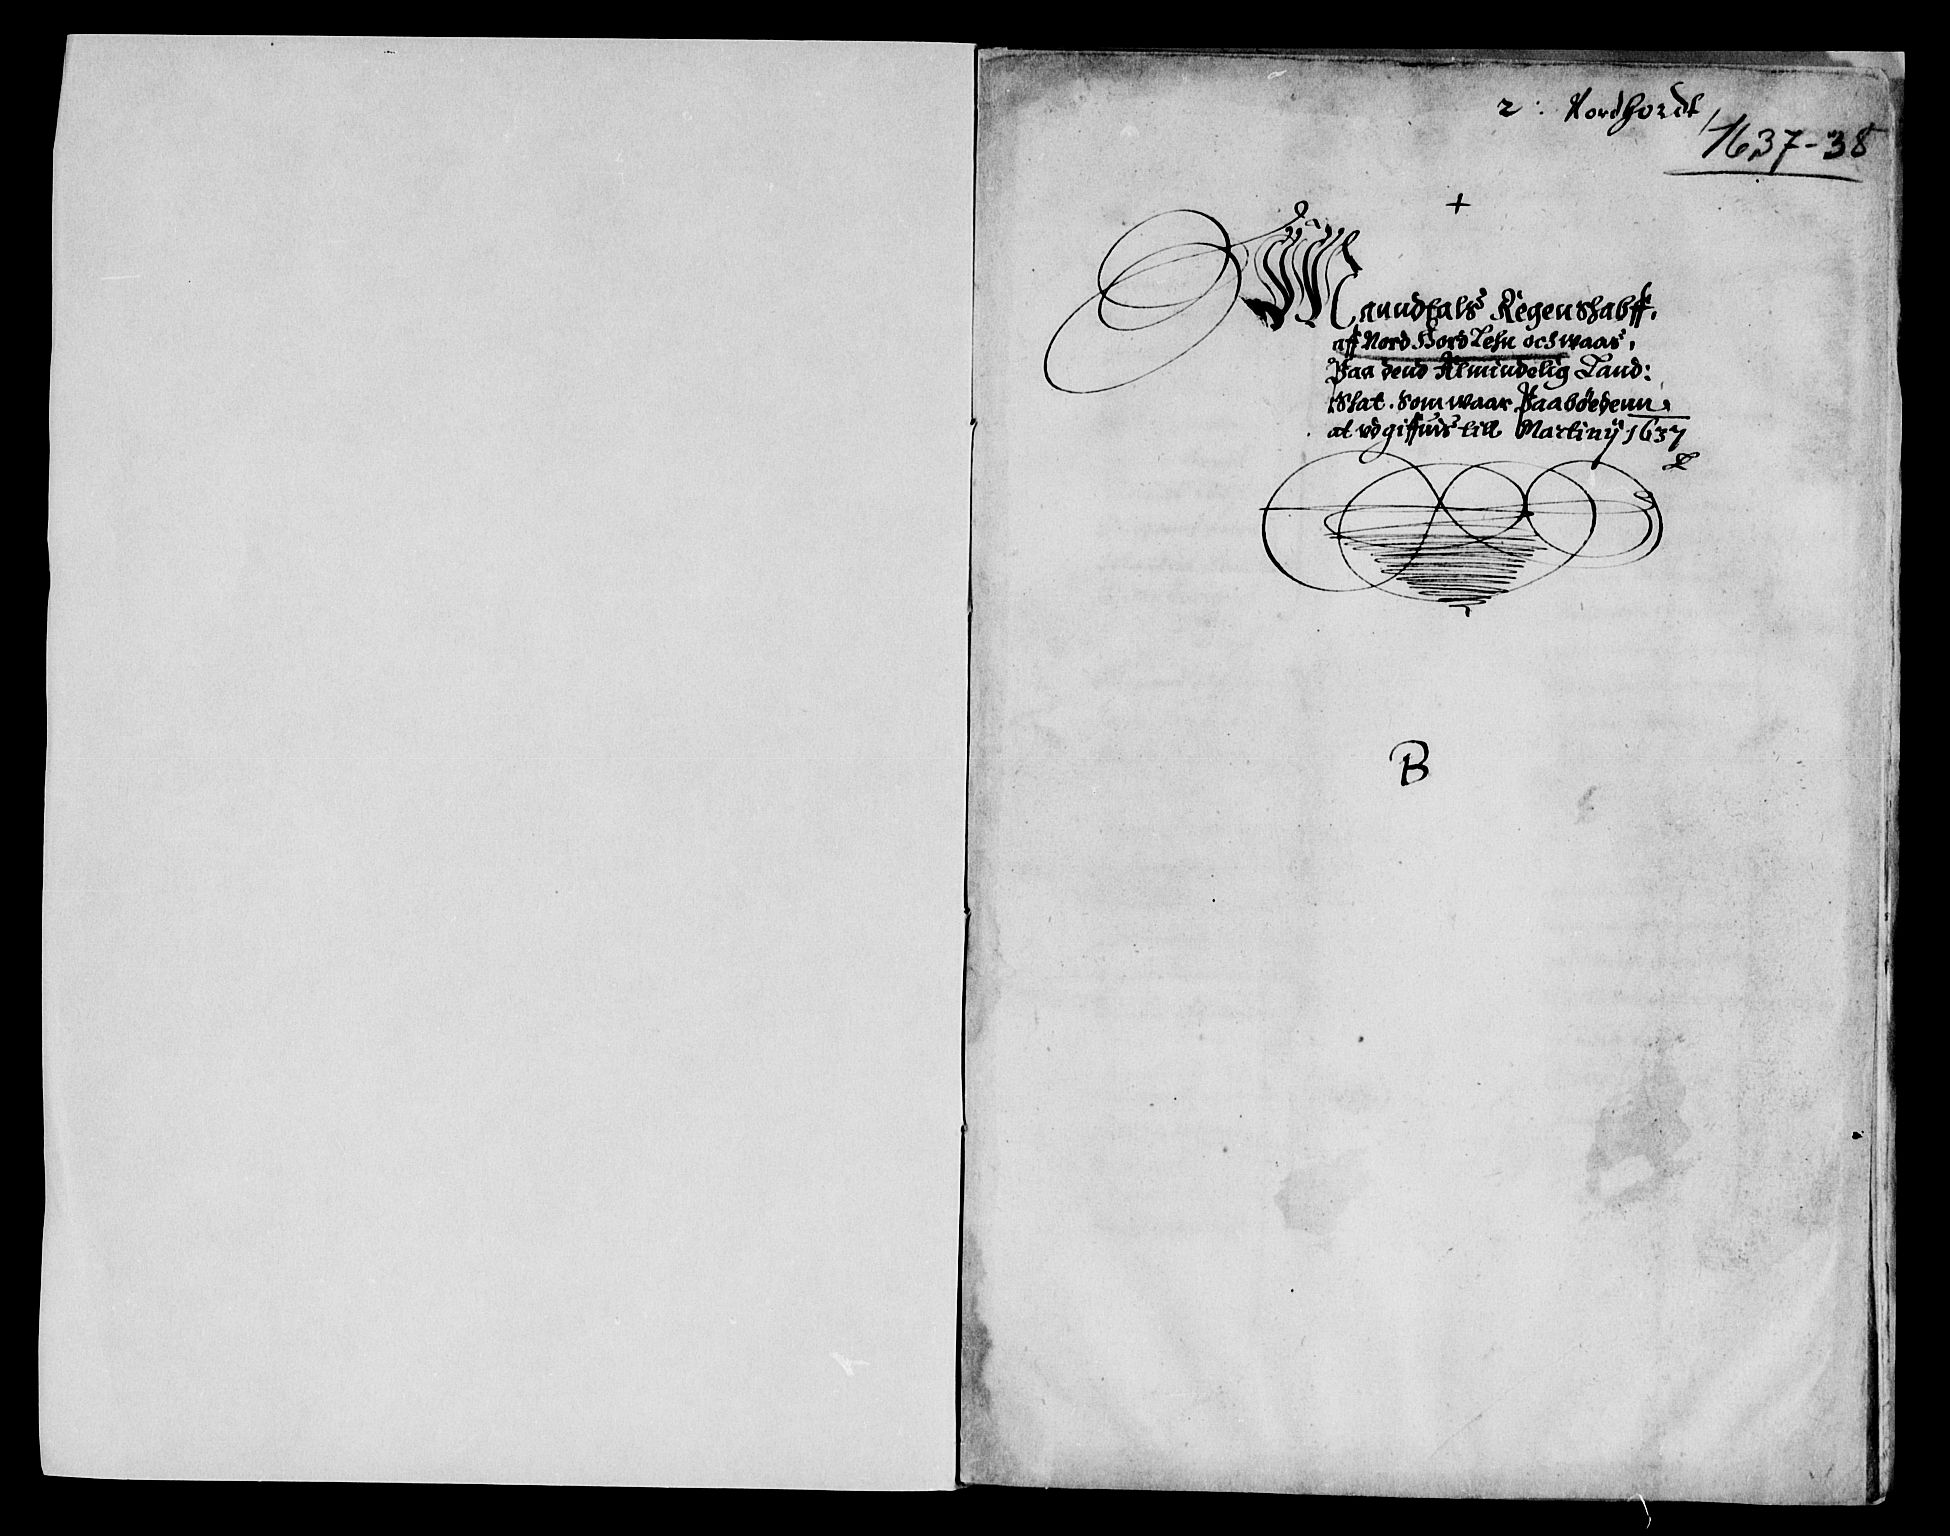 2 : Nordhordt
1637-38
+
Manndtals Regenshabff,
aff Nord Hord Lehn och waas,
Paa dend Almindelig Land:
Skat. Som waar Paabøedenn
at vdgiffuis till Martinÿ 1637
B